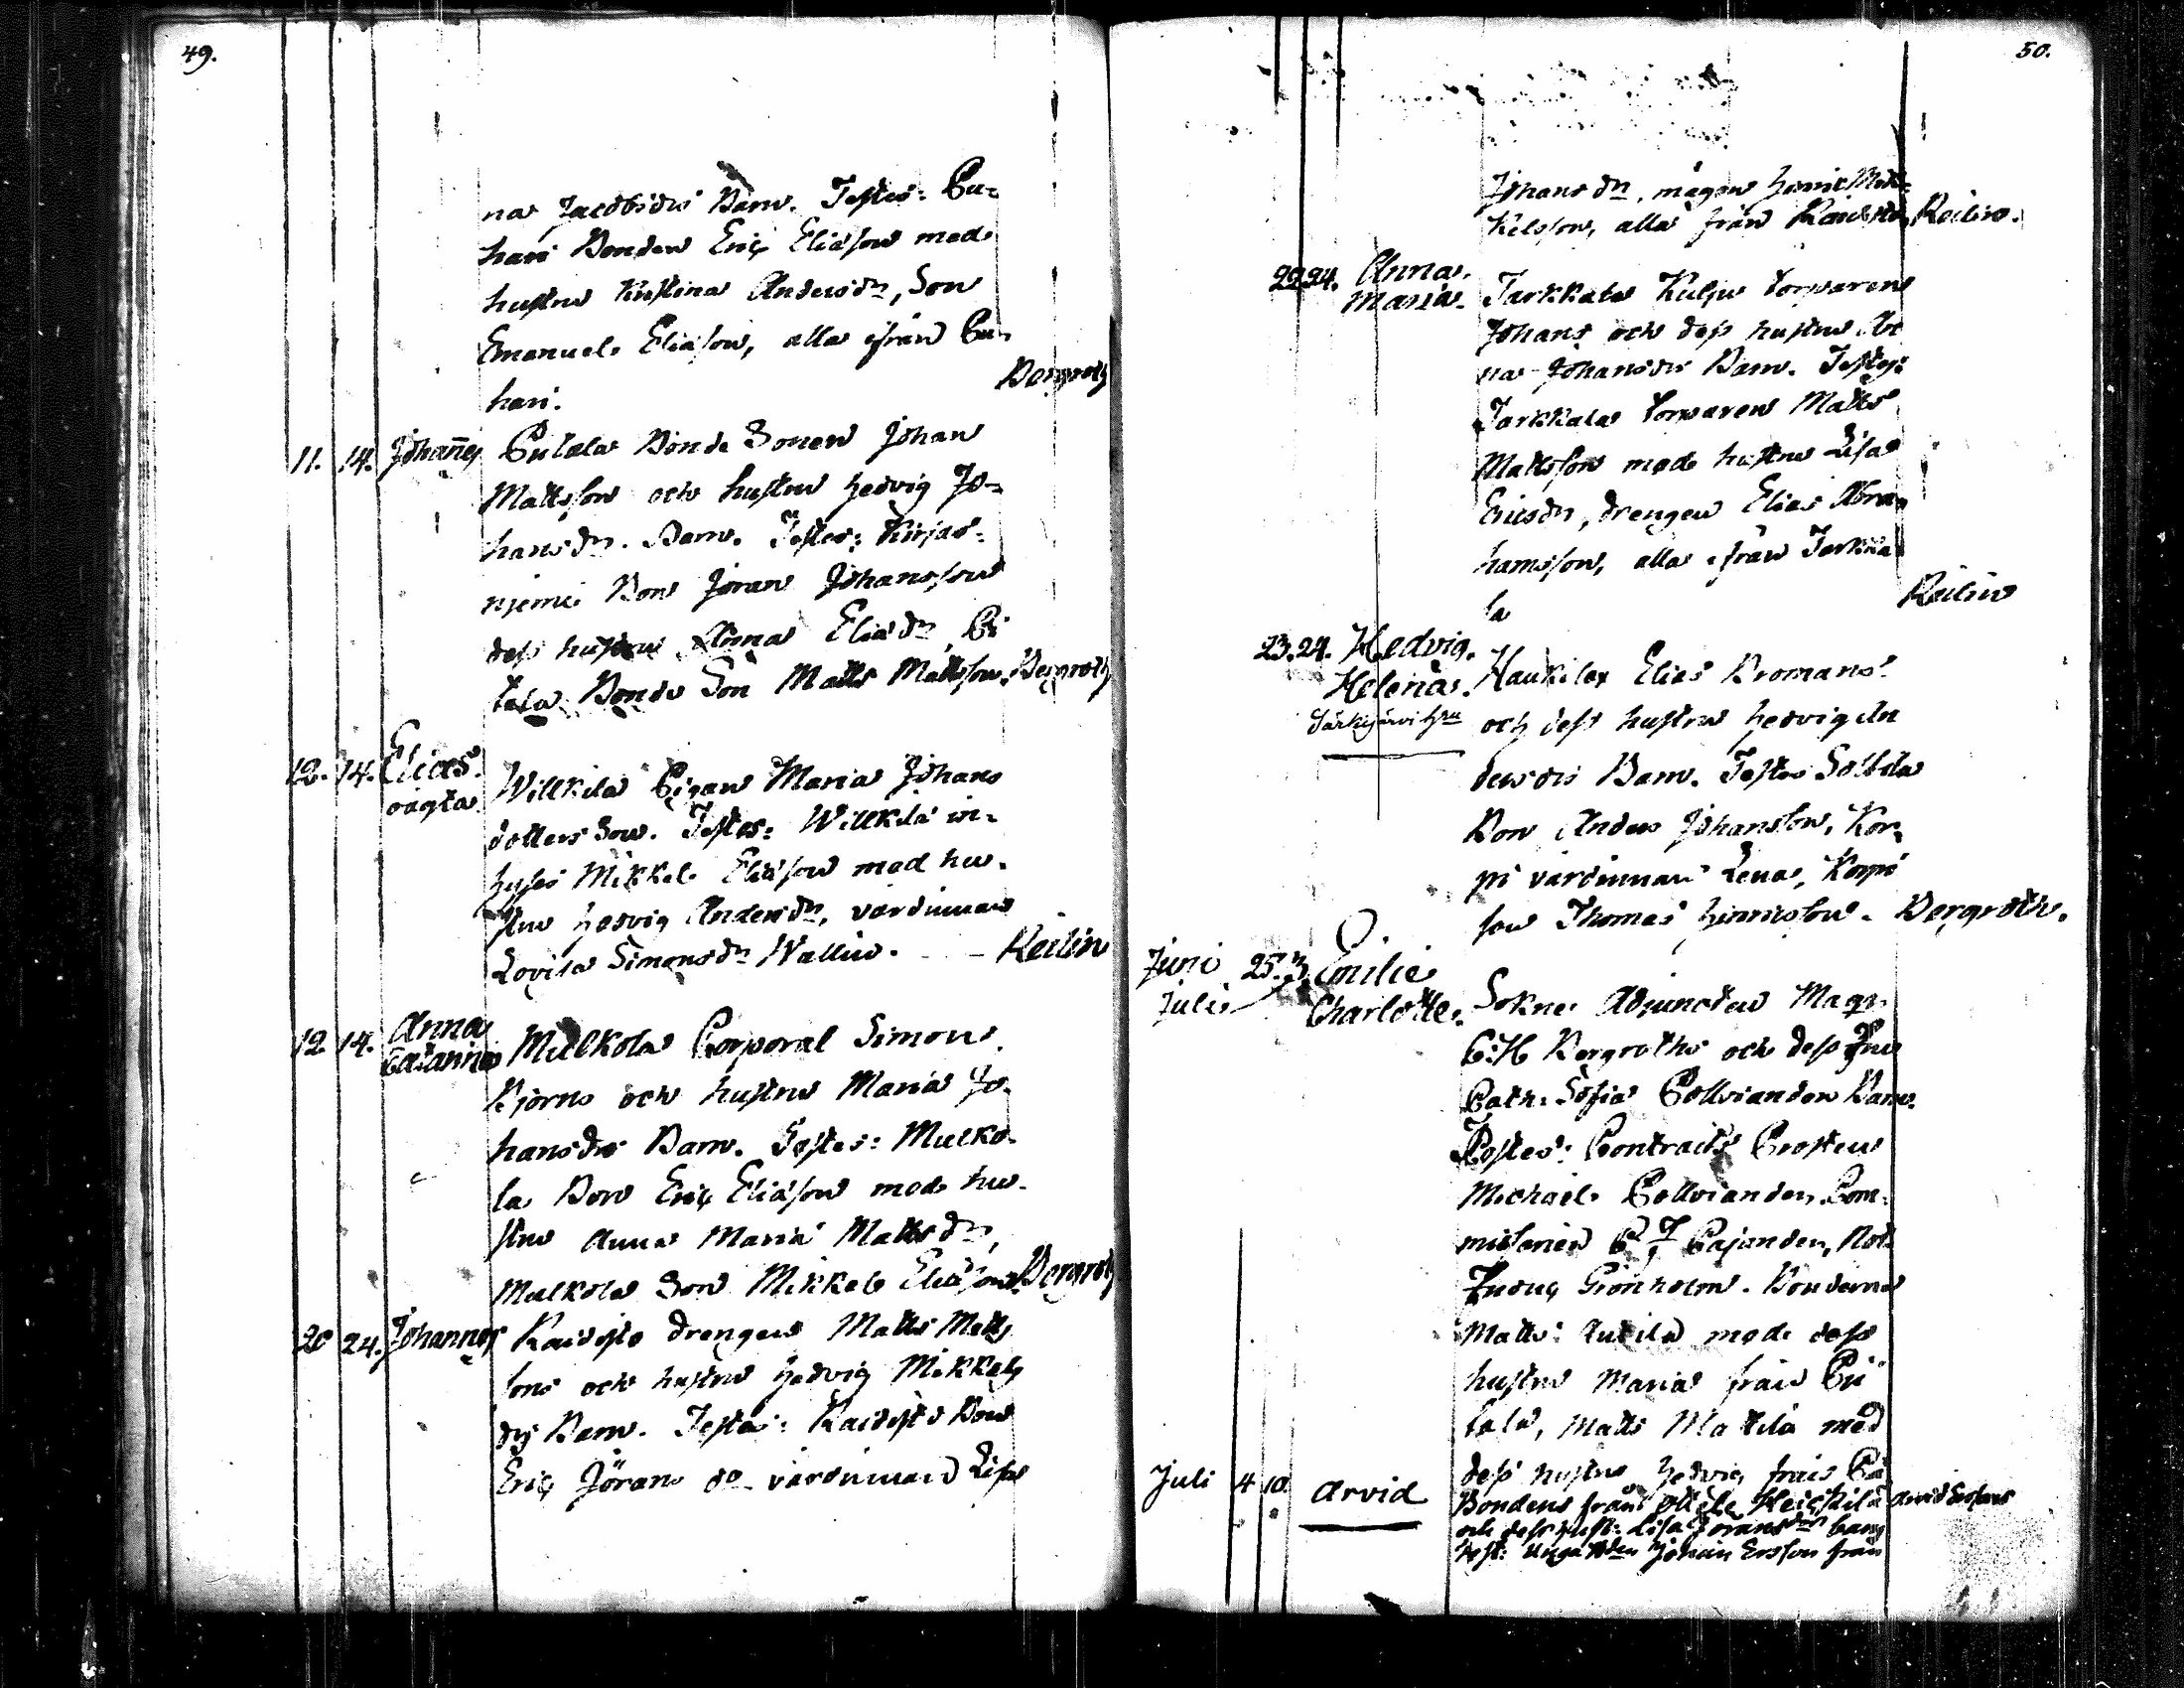 49.
na Jacobsdrs Barn. Testes: Pu-
hari Bonden Eric Eliasson med
hustru Kristina Andersdr, Son
Emanuel Eliasson, alla ifrån Pu-
hari. Bergroth
11. 14. Johannes Pietilä Bonde Sonen Johan
Mattsson och hustru Hedvig Jo-
hansdrs. Barn. Testes:
niemi Bon Jöran Johansson
dess hustru Anna Eliædr, Pi-
tilä Bonde Son Matts Mattsson. Bergroth
12. 14. Elias.
oägta. Willkilä Pigan Maria Johans
dotters Son. Testes: Willkilä in-
hyses Mikkel Eliasson med hu-
stru Hedvig Andersdr, värdinnan
Lovisa Simonsdr Wallin. - - Keilin
12 14. Anna
Catarina Mulkola Corporal Simon
Björns och hustru Maria Jo-
hansdrs Barn. Testes: Mulko-
la Bon Eric Eliasson med hu-
stru Anna Maria Mattsdr,
Mulkola Son Mikkel Eliasson. Bergroth
20 24. Johannes Kaidesto drengen Matts Matts
sons och hustru Hedvig Mikkels
drs Barn. Testes: Kaidesto Bon
Eric Jöran do värdinnan Lisa
50.
Johansdr, mågen Henric Mik-
kelsson, alla från Kaidesto, Keilin.
22 24. Anna
Maria. Jarkkala Torparen
Johans och dess hustru An
na Johansdrs Barn. Testes:
Jarkkala Torparen Matts
Mattsson med hustru Lisa
Ericsdr, drengen Elias Abra-
hamsson, alla ifrån Jarkka
la Keilin
23. 24. Hedvig
Helena. Elias Bromans
Särkijärvi
och dess hustru Hedvig An
dersdrs Barn. Testes
Bon Anders Johansson, Kor-
pi värdinnan Lena, Korpi
son Thomas Henricsson. Bergroth.
Juni 25. 3. Emilie
Juli Charlotte. Sokne Adjuncten Mag.
C: H Bergroths och dess Fru
Cath: Sofia Pollvianders Barn.
Testes: Contracts Prosten
Michael Pollviander, Com-
missarien Cajander, Not.
Grönholm. Bönderna
Matts med dess
hustru Maria från Pii
tala, Matts Mattila med
dess hustru Hedvig från
Juli 4 10. Arvid Bondens från Heickilä
och dess hust: Lisa Jöransdrs barn
test: unga Johan Ersson från